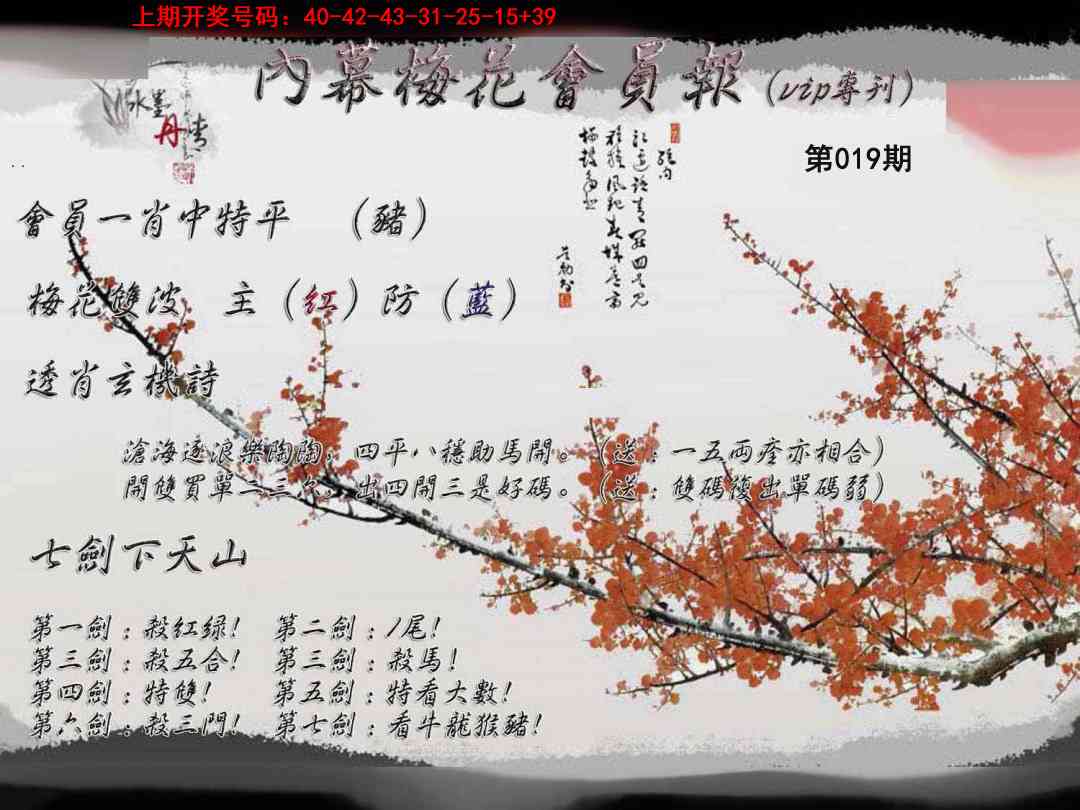 上期开奖号码：40-42-43-31-25-15+39
內幕梅花會員報（vip專刊）
水墨丹青
第019期
會員一肖中特平 （豬）
梅花雙波 主（紅）防（藍）
透肖玄機詩
滄海逐浪樂陶陶，四平八穩助馬開。（送：一五兩叄亦相合）
開雙買單二三次，出四開三是好碼。（送：雙碼復出單碼弱）
七劍下天山
第一劍：殺紅绿！ 第二劍：1尾！
第三劍：殺五合！ 第三劍：殺馬！
第四劍：特雙！ 第五劍：特看大數！
第六劍：殺三門！ 第七劍：看牛龍猴豬！